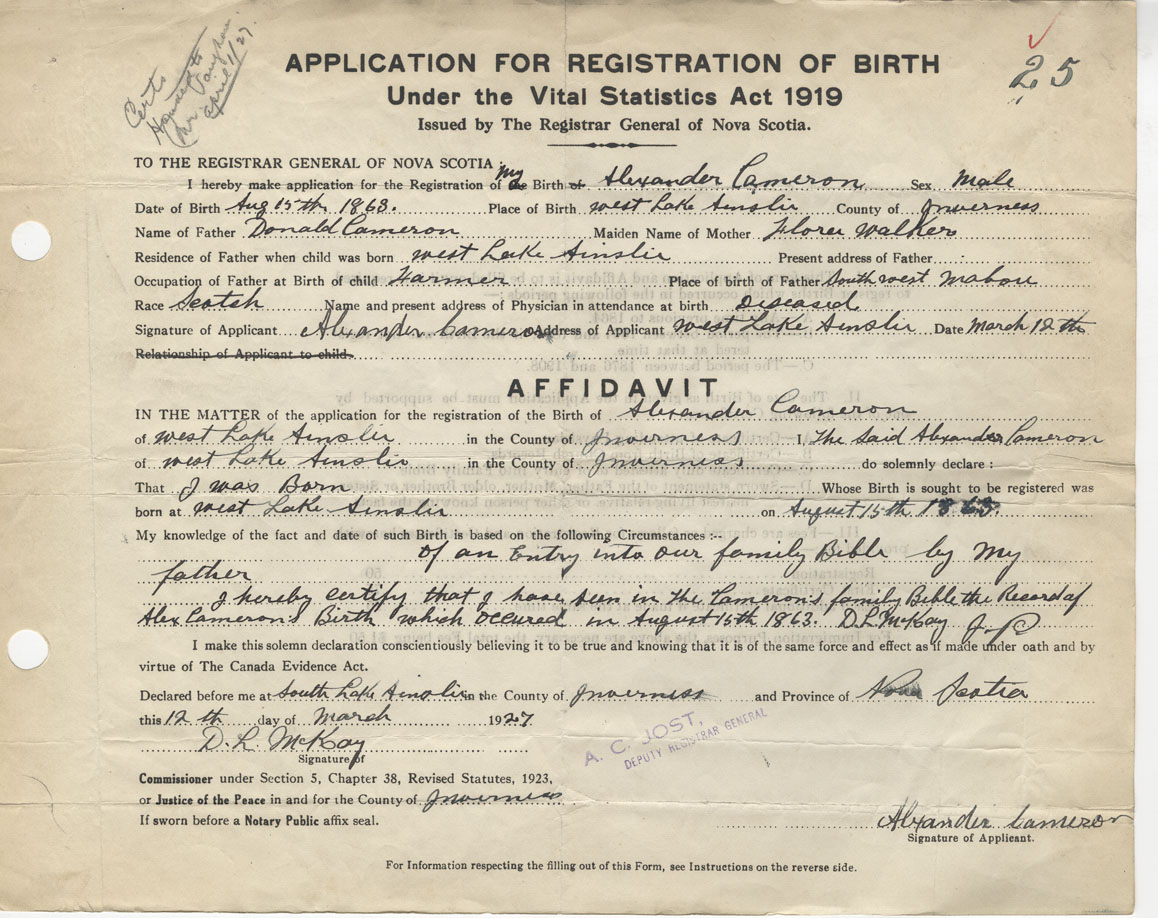 Certs
Handed to
Mr. Vaughan
April 1/27
25
APPLICATION FOR REGISTRATION OF BIRTH
Under the Vital Statistics Act 1919
Issued by The Registrar General of Nova Scotia.
TO THE REGISTRAR GENERAL OF NOVA SCOTIA:
I hereby make application for the Registration of my the Birth of Alexander Cameron Sex Male
Date of Birth Aug 15th 1863. Place of Birth West Lake Ainslie County of Inverness
Name of Father Donald Cameron Maiden Name of Mother Flora Walker
Residence of Father when child was born West Lake Ainslie Present address of Father
Occupation of Father at Birth of child Farmer Place of birth of Father South west Mabou
Race Scotch Name and present address of Physician in attendance at birth Diseased
Signature of Applicant Alexander Cameron Address of Applicant West Lake Ainslie Date March 12th
Relationship of Applicant to child.
AFFIDAVIT
IN THE MATTER of the application for the registration of the Birth of Alexander Cameron
of West Lake Ainslie in the County of Inverness I, The Said Alexander Cameron
of West Lake Ainslie in the County of Inverness do solemnly declare:
That I was Born Whose Birth is sought to be registered was
born at West Lake Ainslie on August 15th 1863.
My knowledge of the fact and date of such Birth is based on the following Circumstances:--
of an Entry into our family Bible by My
father
I hereby certify that I have seen in the Cameron's family Bible the Record of
Alex Cameron's Birth which occured in August 15th 1863. D L McKay J.P
I make this solemn declaration conscientiously believing it to be true and knowing that it is of the same force and effect as if made under oath and by
virtue of The Canada Evidence Act.
Declared before me at South Lake Ainslie in the County of Inverness and Province of Nova Scotia
this 12th day of March 1927
D. L. McKay
Signature of
A. C. JOST,
DEPUTY REGISTRAR GENERAL
Commissioner under Section 5, Chapter 38, Revised Statutes, 1923,
or Justice of the Peace in and for the County of Inverness
If sworn before a Notary Public affix seal.
Alexander Cameron
Signature of Applicant.
For Information respecting the filling out of this Form, see Instructions on the reverse side.